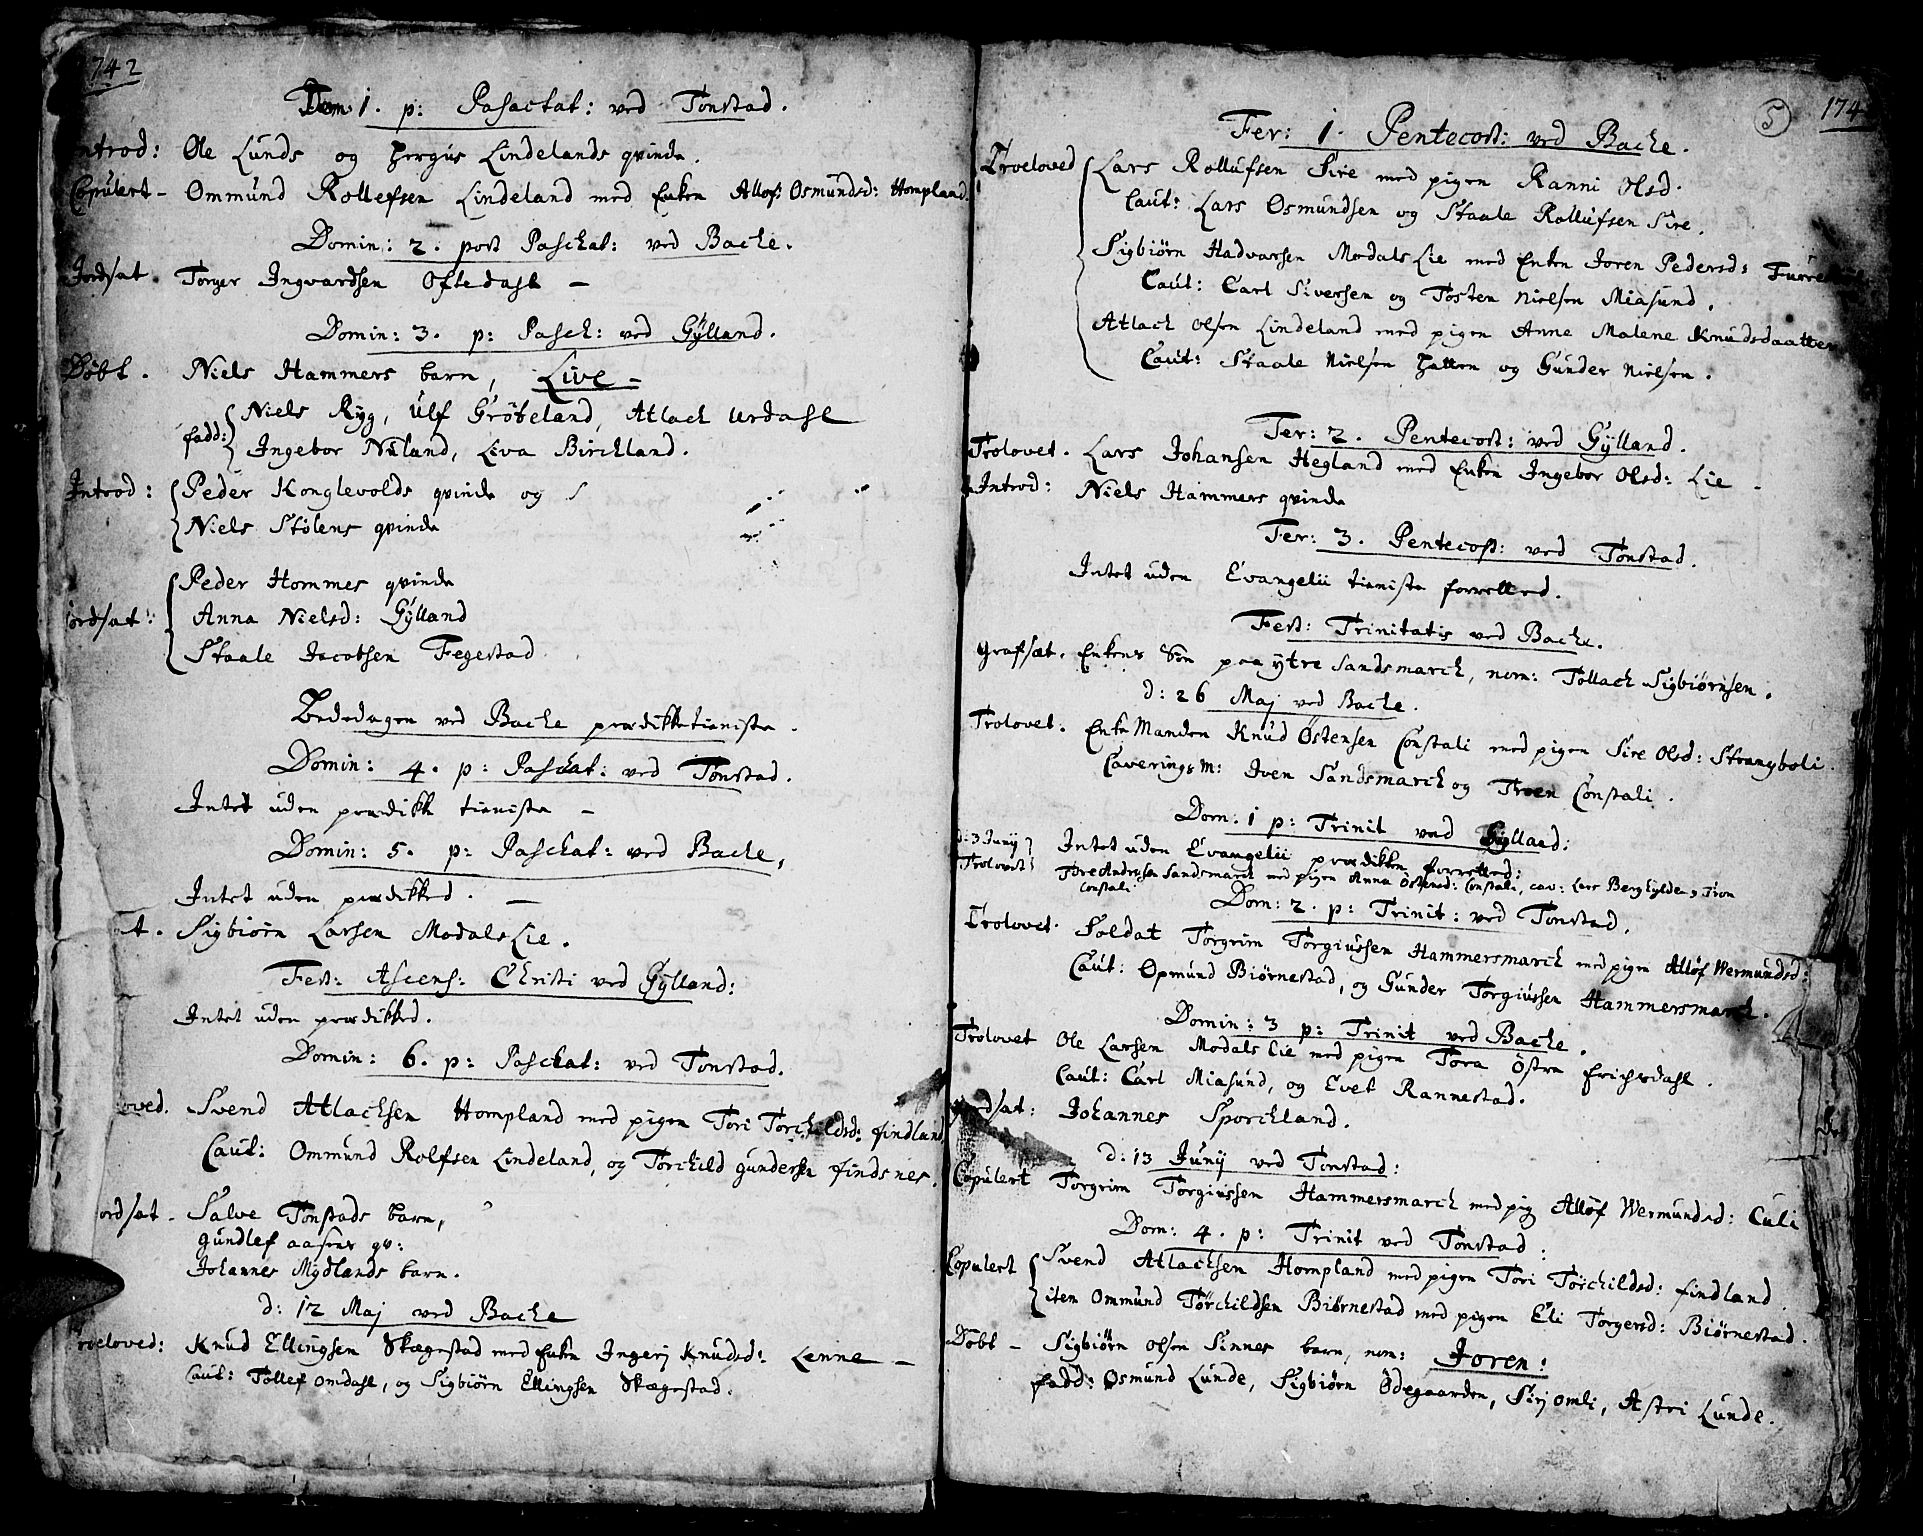 742
Dom 1. p: Pasactat: ved Tonstad.
ntrod: Ole Lunds og Lindelands qvinde.
Copulert - Ommund Rollefsen Lindeland med Enken Allof: Osmundsd: Hompland.
Domin: 2. post Paschat: ved Bache.
Jordsat. Torger Ingvardsen Oftedahl -
Domin: 3. p: Pasch: ved Gylland.
Döbt. Niels Hammers barn, Live -
fadd: Niels Ryg, Ulf Gröteland, Atlach Urdahl
Ingebor Nuland, Liva Birchland.
Introd: Peder Konglevolds qvinde og
Niels Stölens qvinde
Peder Hommes qvinde
ordsat: Anna Nielsd: Gylland
Staale Jacobsen Fegestad
Bededagen ved Bache prædikketieniste.
Domin: 4. p: Paschat: ved Tonstad.
Intet uden prædikke tieniste -
Domin: 5. p: Paschat: ved Bache,
Intet uden prædikked. -
t. Sigbiörn Larsen Modals Lie.
Fest: Ascens: Christi ved Gylland:
Intet uden prædikked.
Domin: 6. p: Paschat: ved Tonstad.
oved. Svend Atlachsen Hompland med pigen Tori Torchildsd: findland
Caut: Ommund Rolfsen Lindeland, og Torchild gundersen findsnes.
ordsat. Salve Tonstads barn,
gundlef aasens qv:
Johannes Mydlands barn.
d: 12 Maj ved Bache
roeloved: Knud Ellingsen Skægestad med Enke Ingerj Knudsd: Lenne -
Caut: Tollef omdahl, og Sigbiörn Ellingsen Skægestad.
5 174
Fer: 1. Pentecost: ved Bache.
Troeloved Lars Rollufsen Sire med pigen Ranni Olsd.
Caut: Lars Osmundsen og Staale Rollufsen Sire.
Sigbiörn Hadvarsen Modals Lie med Enken Joren Pedersd:
Caut: Carl Siversen og Tosten Nielsen Miasund.
Atlach olsen Lindeland med pigen Anne Malene Knudsdaatter
Caut: Staale Nielsen Hatten og Gunder Nielsen.
Fer: 2. Pentecost: ved Gylland.
Trolovet. Lars Johansen Hegland med Enken Ingebor Olsd: Lie -
Introd: Niels Hammers qvinde
Fer: 3. Pentecost: ved Tonstad.
Intet uden Evangelii tieniste forretted.
Fest: Trinitatis ved Bache.
Grafsæt. Enkens Sön paa ytre Sandsmarch, nom: Tollach Sigbiörnsen.
d: 26 Maj ved Bache.
Trolovet. Enke Manden Knud Östensen Constali med pigen Sire Olsd: Strangboli.
Caverings M: Iven Sandsmarch og Troen Constali.
Dom: 1 p: Trinit ved Gylland:
d: 3 Junij Intet uden Evangelii prædikken forretted:
Trolovet Tore Andersen Sandsmarch med pigen Anna Östensd: Constali, cav: Lars Berg Tron
Constali
Dom: 2. p: Trinit: ved Tonstad.
Trolovet. Soldat Torgrim Torgiussen Hammersmarch med pigen Allöf Wermundsd:
Caut: Opmund Biörnestad, og Gunder Torgiussen Hammersmarch.
Domin: 3 p: Trinit ved Bache.
Trolovet Ole Larsen Modals Lie med pigen Tora Östre frichsdahl.
Caut: Carl Miasund, og Evet Rannestad.
Jordsat: Johannes Sporchland.
d: 13 Junij ved Tonstad:
Copulert Torgrim Torgiussen Hammersmarch med pig Allöf Wermundsd: Culi
Dom: 4. p: Trinit ved Tonstad:
Copulert Svend Atlachsen Hompland med pigen Tori Torchildsd: findland.
item Ommund Torchildsen Biörnestad med pigen Eli Torgersd: Biörnestad.
Döbt - Sigbiörn olsen Sinnes barn, nom: Joren:
fadd: Osmund Lunde, Sigbiörn Ödegaarden, Sirj omli, Astri Lunde.